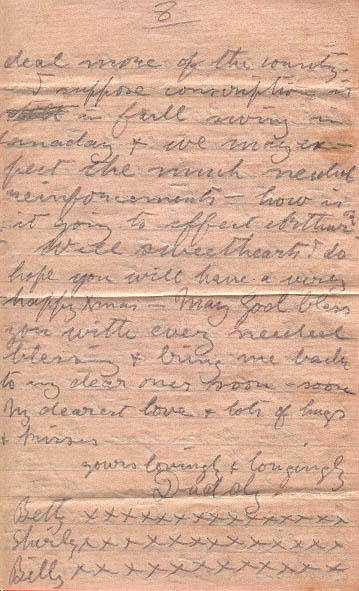 8
deal more of the country.
I suppose conscription is
in full swing in
Canaday & we may ex-
pect the much needed
reinforcements - how is
it going to effect Arthur?
Well sweethearts I do
hope you will have a very
happy Xmas - May God bless
you with every needed
blessing & bring me back
to my dear ones soon - soon
My dearest love & lots of hugs
& kisses
yours lovingly & longingly
Daddy.
Betty xxxxxxxxxxxxxxx
Shirley xxxxxxxxxxxxxx
Billy xxxxxxxxxxxxxx